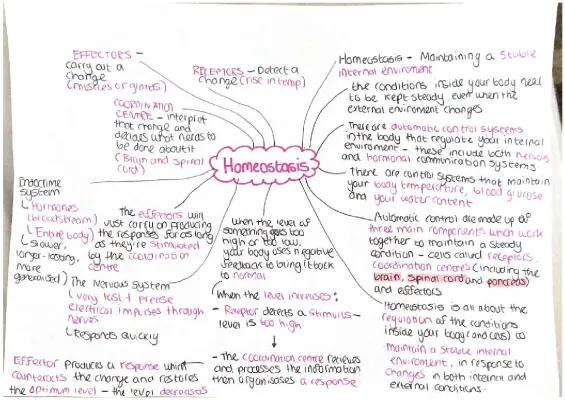 EFFECTORS -
carry out a
change
(muscles or glands)
RECEPTORS - Detect a
change (rise in temp)
COORDINATION
CENTRE - interpret
that change and
decides what needs to
be done about it
(Brain and spinal
cord)
Homeostasis
Homeostasis - Maintaining a stable
internal enviroment
the conditions inside your body need
to be kept steady even when the
external enviroment changes
There are automatic control systems
in the body that regulate your internal
enviroment - these include both nervous
and hormonal communication systems
There are control systems that maintain
your body temperature, blood glucose
and your water content
Automatic control are made up of
three main components which work
together to maintain a steady
condition - cells called receptors,
coordination centres (including the
brain, spinal cord and pancreas)
and effectors
Homeostasis is all about the
regulation of the conditions
inside your body (and cells) to
maintain a stable internal
enviroment, in response to
changes in both internal and
external conditions.
Endocrine
system
↳ Hormones
(bloodstream)
↳ Entire body)
↳ slower,
longer-lasting,
more
generalised)
The effectors will
just carry on producing
the responses for as long
as they're stimulated
by the coordination
centre
The Nervous system
(very fast + precise
electrical impulses through
nerves
↳ Responds quickly
when the level of
something gets too
high or too low,
your body uses negative
feedback to bring it back
to normal
When the level increases:
- Receptor detects a stimulus -
level is too high
↓
- The coordination centre receives
and processes the information
then organises a response
Effector produces a response which
counteracts the change and restores
the optimum level - the level decreases